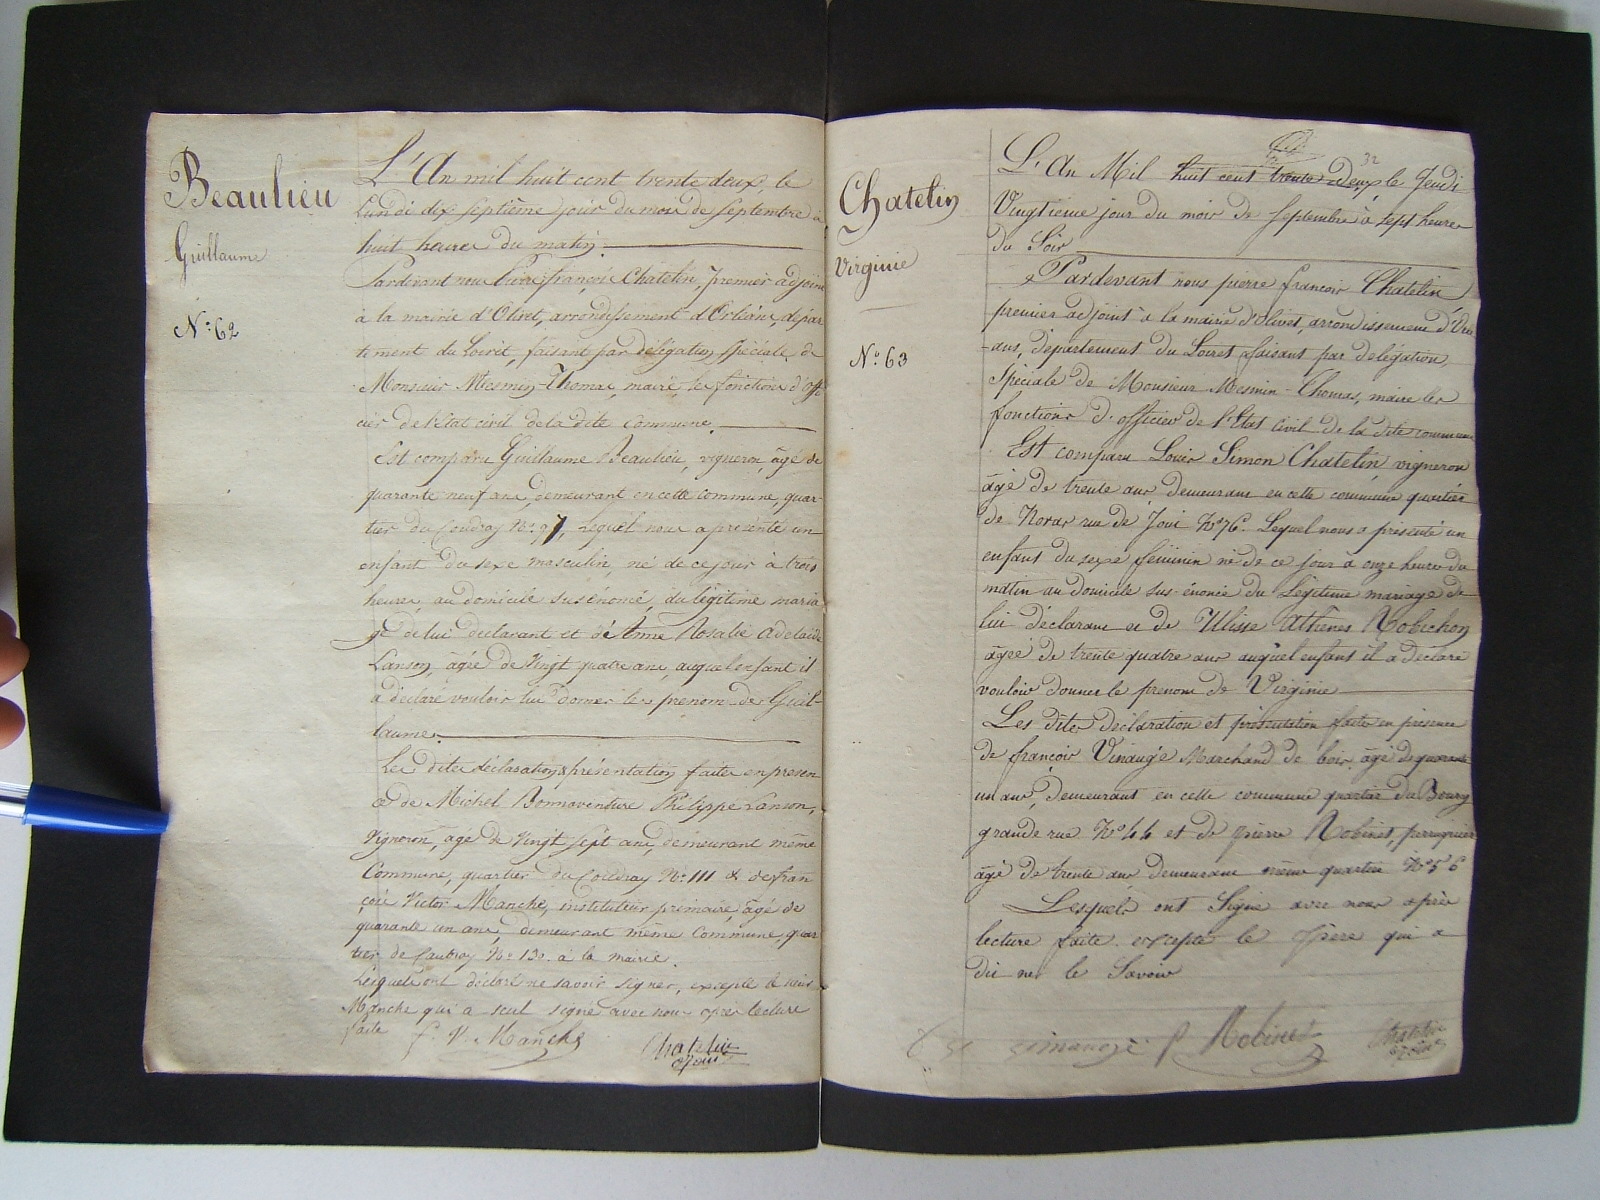 Beaulieu
Guillaume
N.º 62
L'An mil huit cent trente deux, le
Lundi dix septième jour du mois de Septembre à
huit heures du matin
Pardevant nous Pierre françois Chatelin, premier adjoint
à la mairie d'Olivet, arrondissement d'Orléans, dépar
tement du Loiret, faisant par délégation spéciale de
Monsieur Mesmin-Thomas, maire, les fonctions d'offi
cier de l'état civil de la dite commune.
Est comparu Guillaume Beaulieu, vigneron, âgé de
quarante neuf ans, demeurant en cette commune, quar-
tier du Coudray N.º 97, Lequel nous a présenté un
enfant du sexe masculin, né de ce jour à trois
heures, au domicile susénoncé, du légitime maria
ge de lui déclarant et de Anne Rosalie adelaïde
Lanson, âgée de Vingt quatre ans, auquel enfant il
a déclaré vouloir lui donner les prenom de Guil-
laume.
Les dites déclaration & présentation faites en presen
ce de Michel Bonnaventure Philippe Lanson,
Vigneron, âgé de Vingt sept ans, demeurant même
Commune, quartier du Coudray N.º 111 & de fran
çois Victor Manche, instituteur primaire, âgé de
quarante un ans, demeurant même Commune, quar
tier de N.º 13. à la mairie.
Lesquels ont déclaré ne savoir signer, excepté le sieur
Manche qui a seul signé avec nous après lecture
faite
f. V. Manche
Chatelin
adjoint
Chatelin
Virginie
N.º 63
32
L'An Mil huit cent trente Deux le Jeudi
Vingtieme jour du mois de Septembre à sept heures
du Soir
Pardevant nous pierre françois Chatelin
premier adjoint à la mairie d'Olivet, arrondissement d'Orle
-ans, departement du Loiret faisant par delégation,
Spéciale de Monsieur Mesmin-Thomas, maire les
fonctions d'officier de l'Etat Civil de la dite commune
Est comparu Louis Simon Chatelin, vigneron
âgé de trente ans demeurant en cette commune quartier
de Noras rue de Joui N.º 76. Lequel nous a présenté un
enfant du sexe féminin né de ce jour à onze heures du
matin au domicile sus-énoncé du Légitime mariage de
lui déclarant et de Ulisse Athenes Robichon
âgée de trente quatre ans auquel enfant il a déclaré
vouloir donner le prenom de Virginie
Les dites déclaration et présentation faites en présence
de françois Vinaugé Marchand de bois âgé de quarante
un ans, demeurant en cette commune quartier du Bourg
grande rue N.º 44 et de pierre Robinet, perruquier
âgé de trente ans demeurant même quartier N.º 56
Lesquels ont Signé avec nous après
lecture faite excepté le père qui a
dit ne le Savoir
P Robinet
Chatelin
adjoint